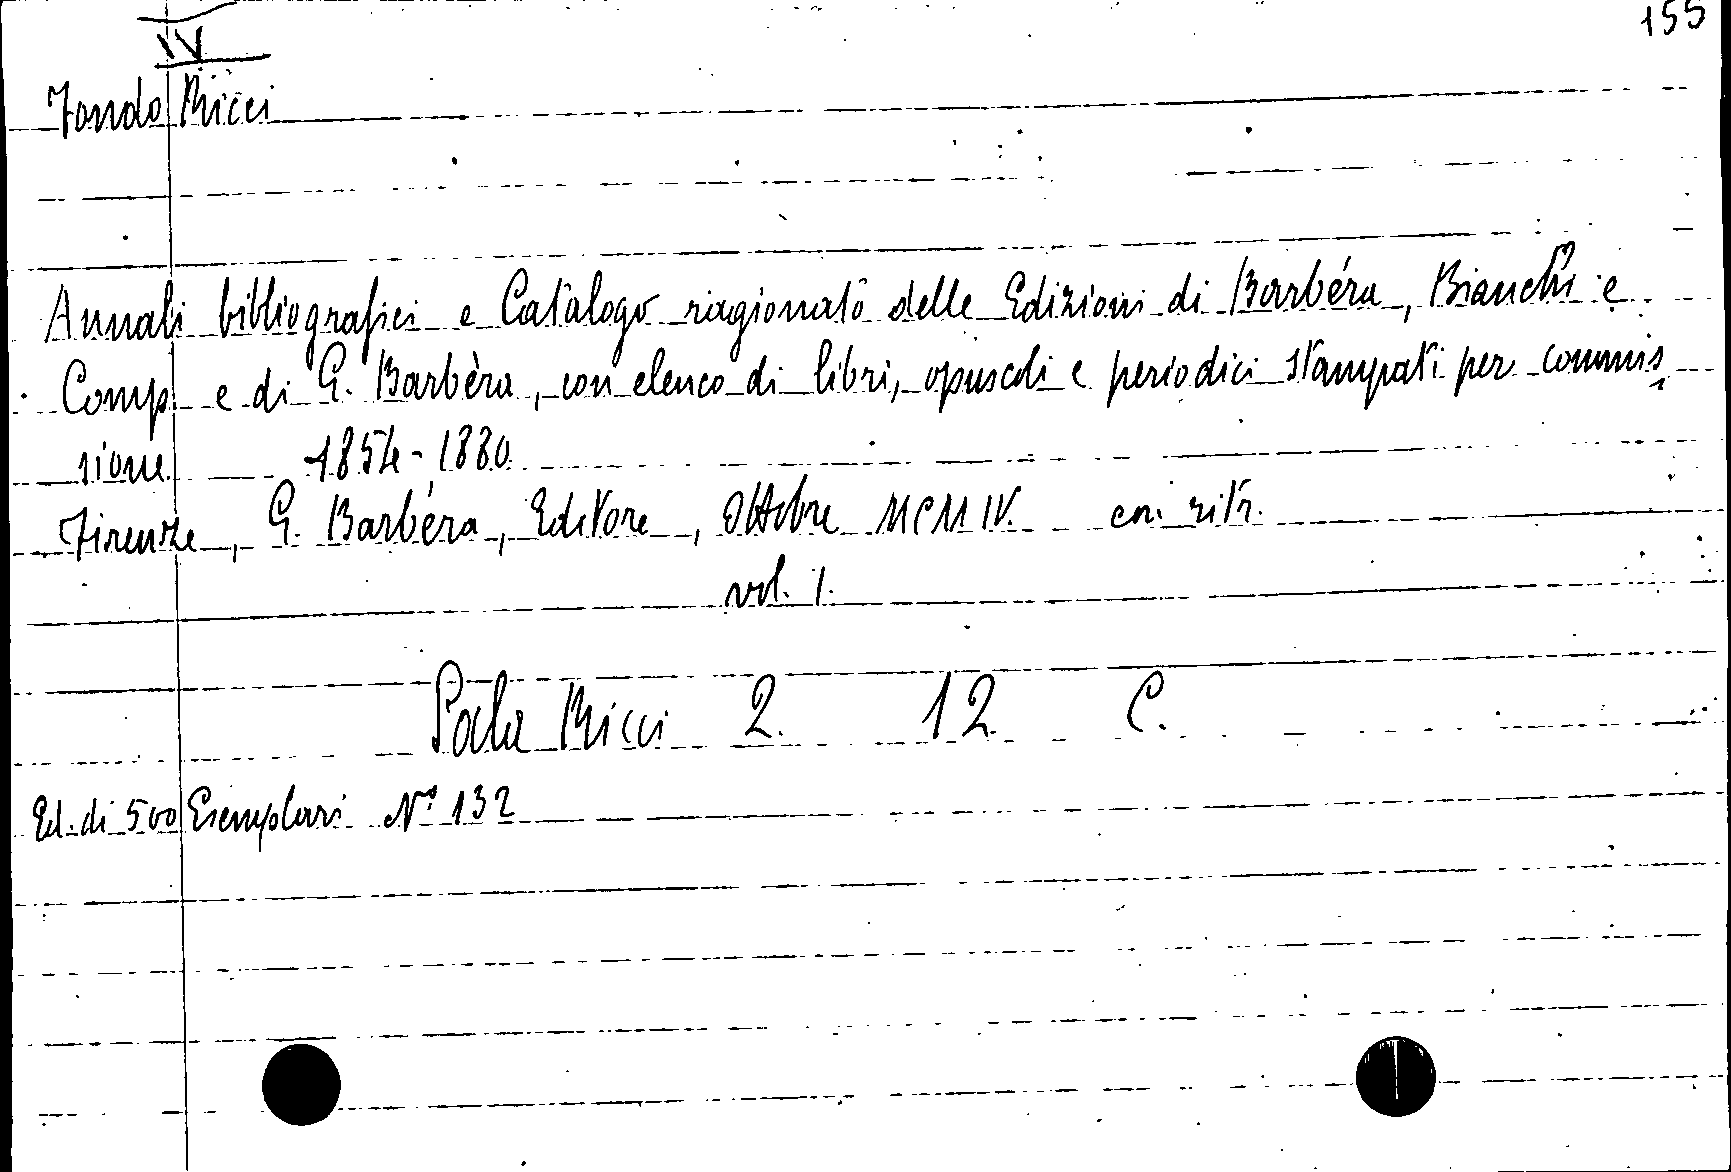 IV
155
Fondo Ricci
Annali bibliografici e Catalogo ragionato delle Edizioni di Barbéra, Bianchi e
Comp. e di G. Barbèra, con elenco di libri, opuscoli e periodici stampati per commis
sione 1854-1880
Firenze, G. Barbéra, Editore, Ottobre MCMIV. con ritr.
vol. 1.
Sala Ricci 2. 12. C.
Ed. di 500 Esemplari N° 132